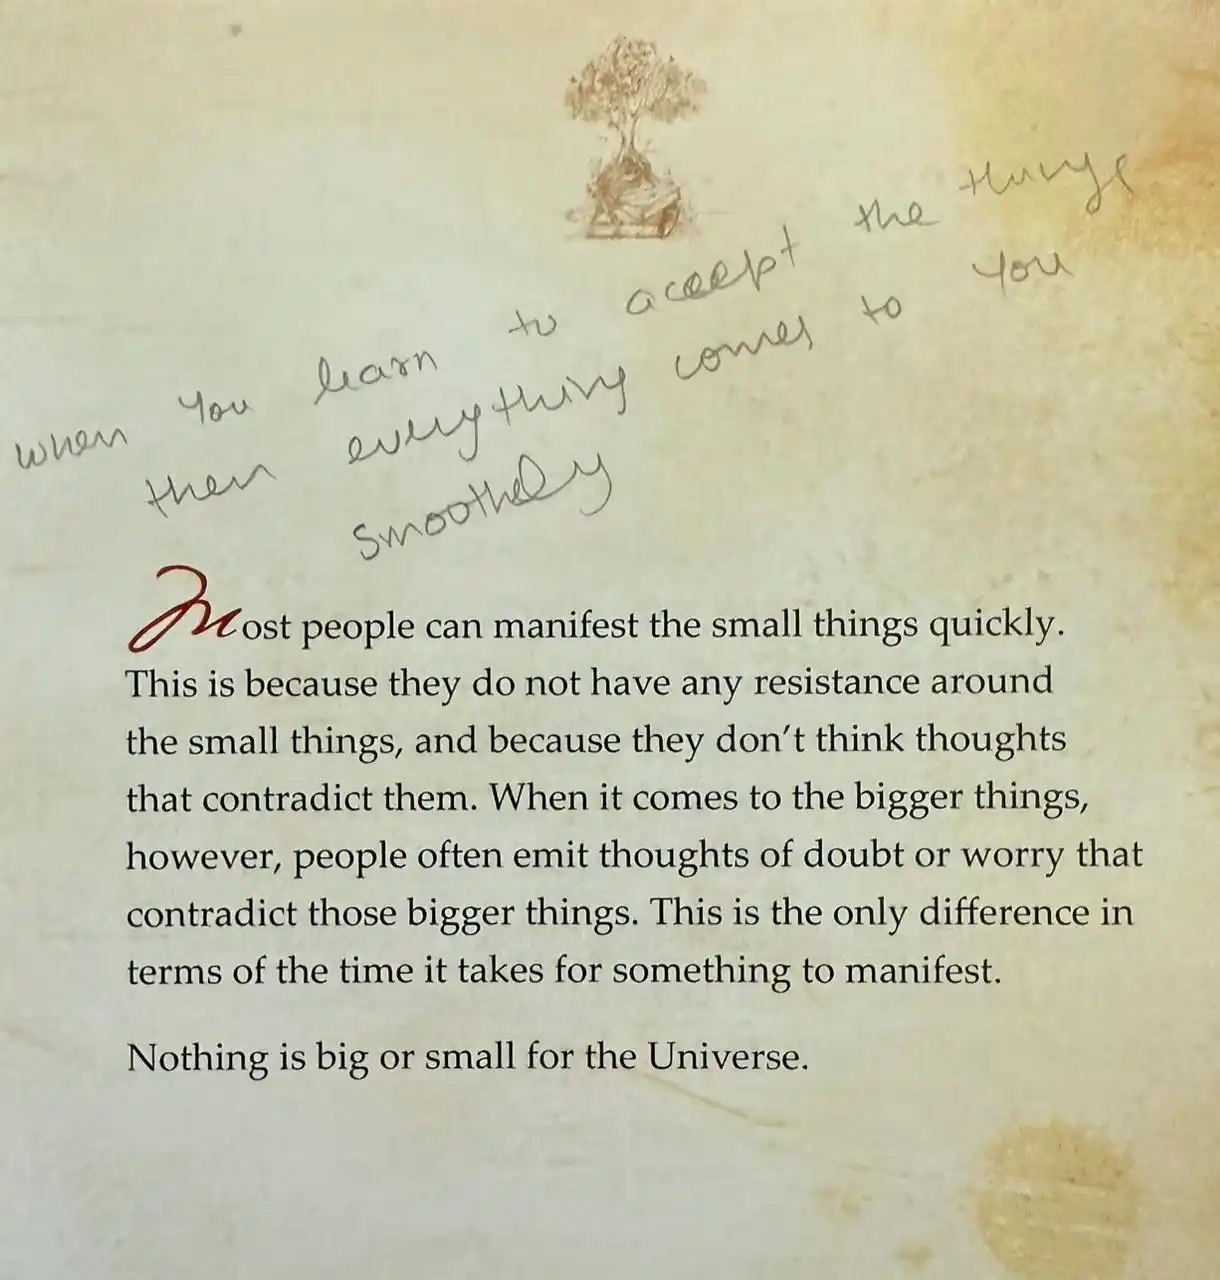 when you learn to accept the things
then everything comes to you
smoothely
Most people can manifest the small things quickly.
This is because they do not have any resistance around
the small things, and because they don't think thoughts
that contradict them. When it comes to the bigger things,
however, people often emit thoughts of doubt or worry that
contradict those bigger things. This is the only difference in
terms of the time it takes for something to manifest.
Nothing is big or small for the Universe.